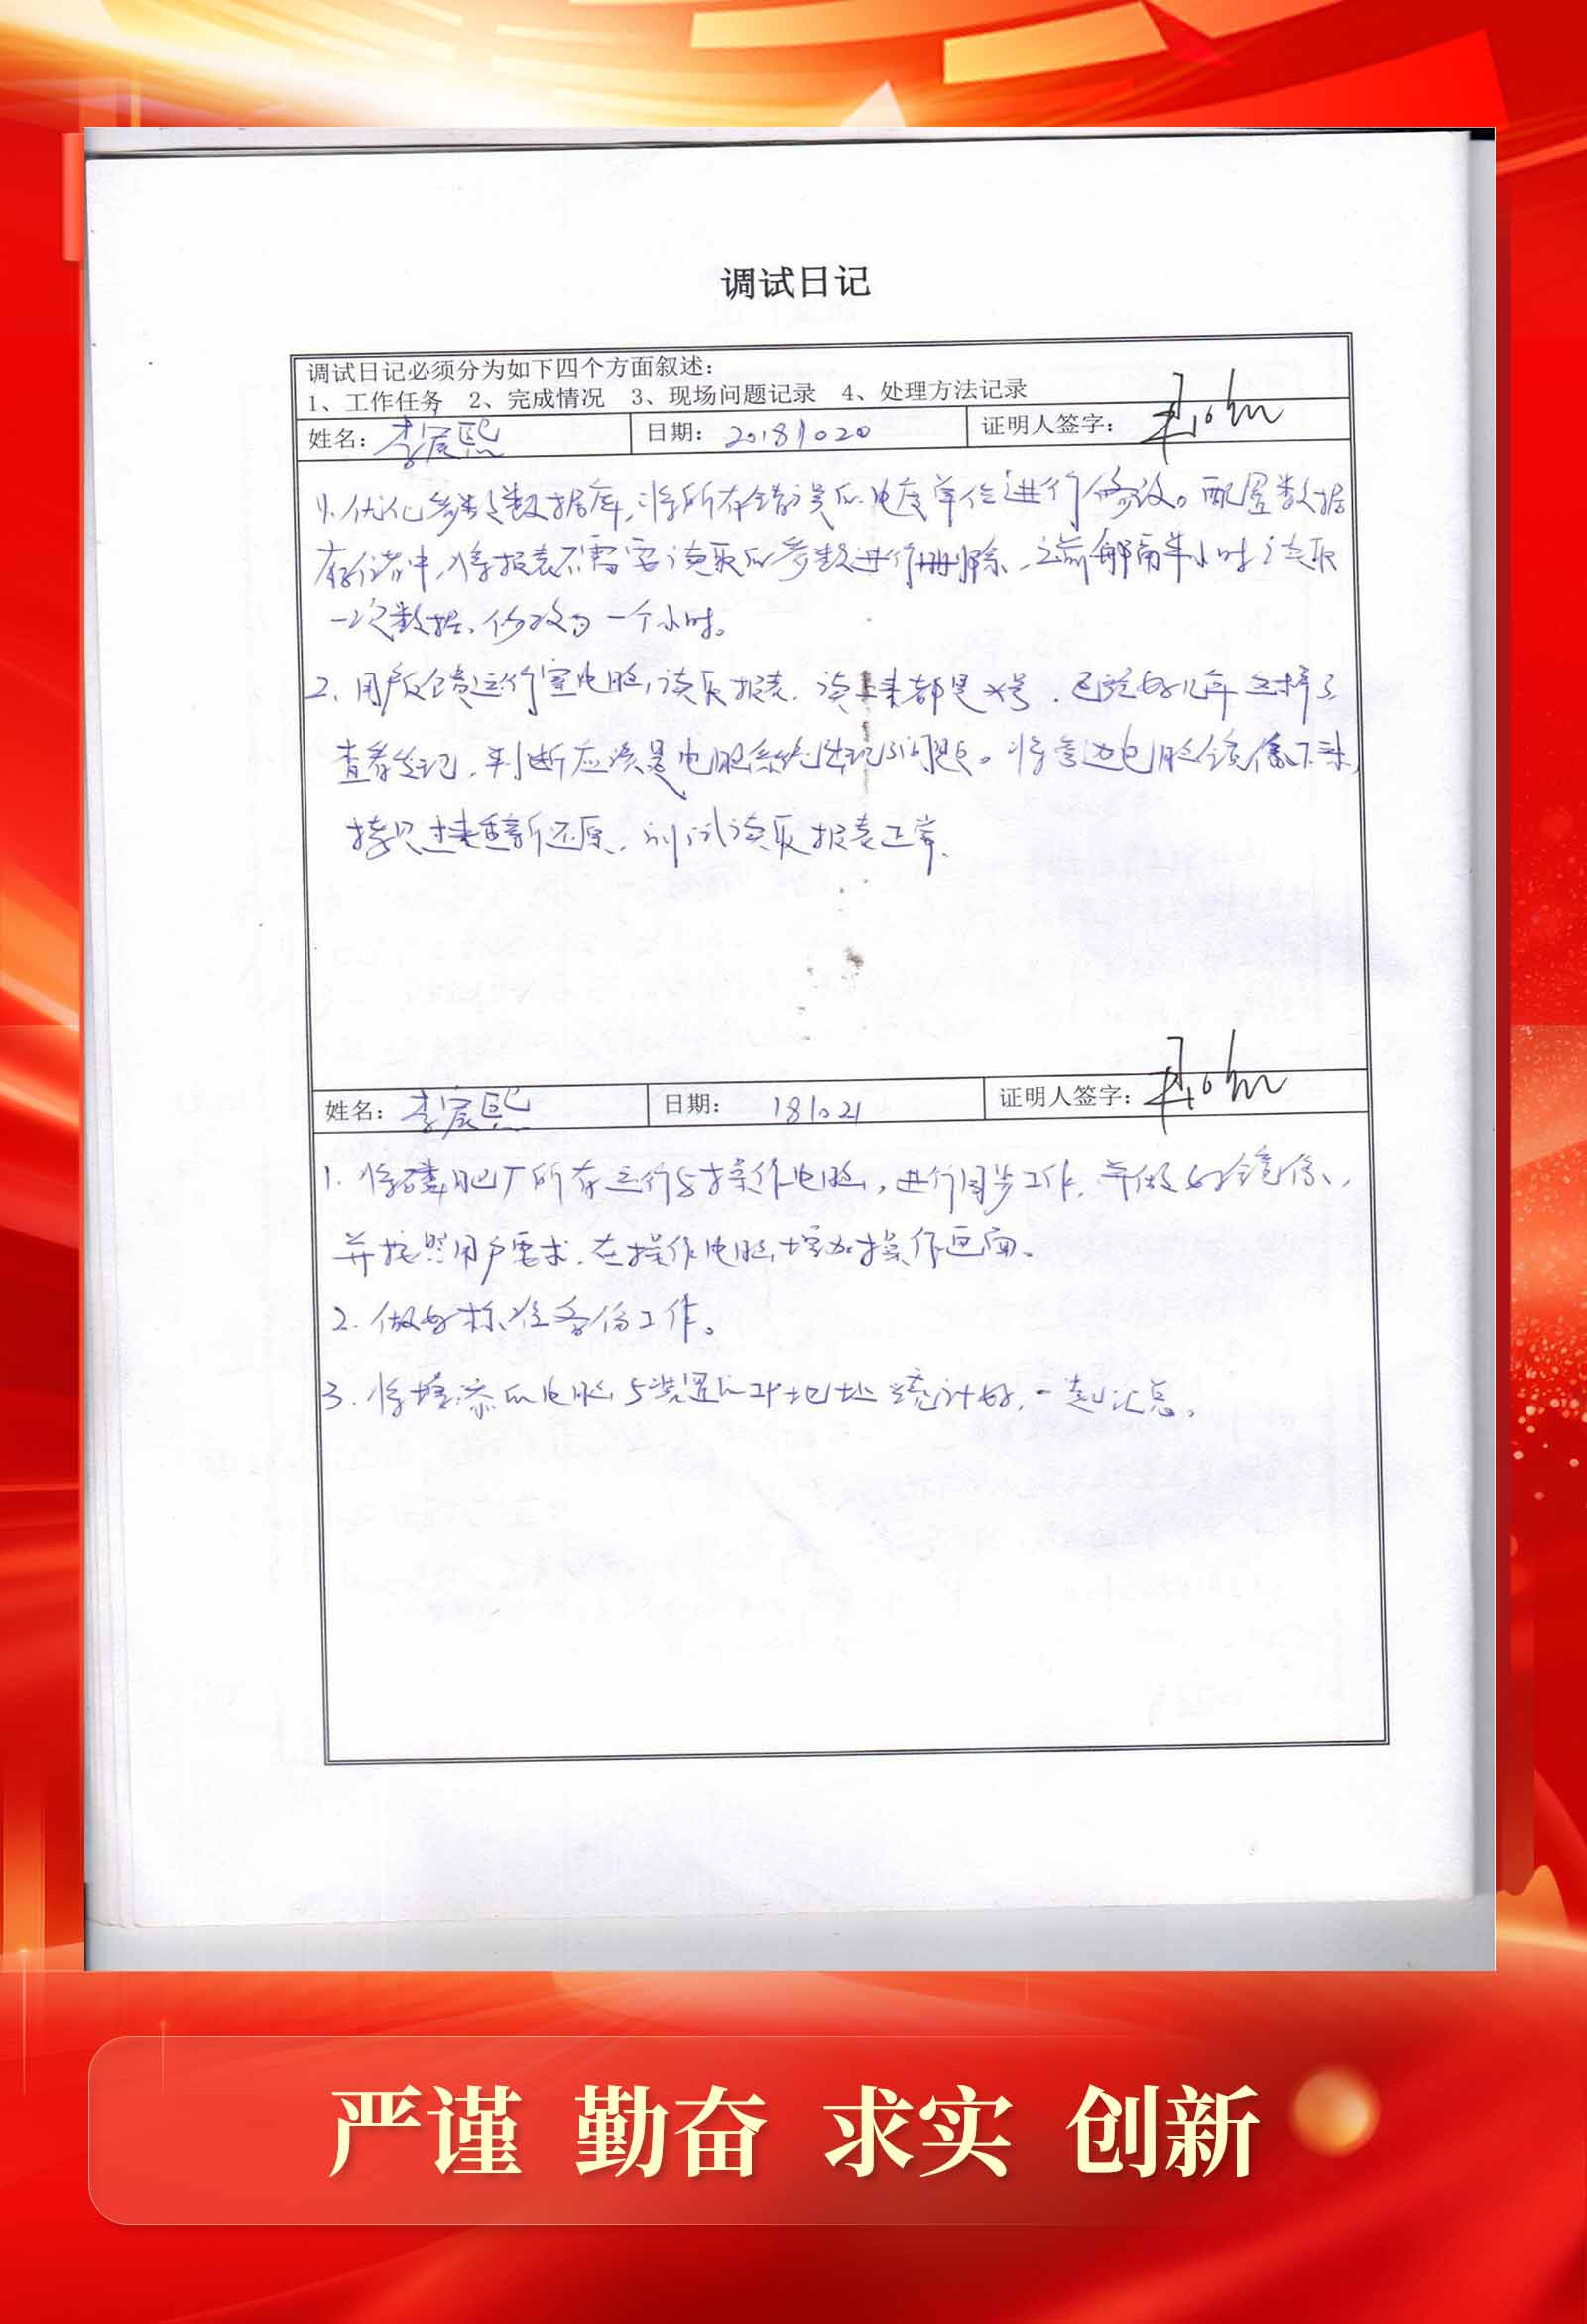 调试日记
调试日记必须分为如下四个方面叙述：
1、工作任务 2、完成情况 3、现场问题记录 4、处理方法记录
姓名：李宸熙 日期：20181020 证明人签字：
1.优化参数数据库,将所有错误的电度单位进行修改。配置数据
存储中,将报表不需要读取的参数进行删除,之前每隔半小时读取
一次数据,修改为一个小时。
2.用户反馈运行室电脑,读取报表,读上来都是×号,已经好几年这样了
查看登记,判断应该是电脑系统出现了问题。将旁边电脑镜像下来,
拷贝过来重新还原,测试读取报表正常.
姓名：李宸熙 日期：181021 证明人签字：
1.将磷肥厂所有运行与操作电脑,进行同步工作,并做好镜像,
并按照用户要求,在操作电脑增加操作画面。
2.做好标准备份工作。
3.将增添的电脑与装置的IP地址统计好,一起汇总。
严谨 勤奋 求实 创新